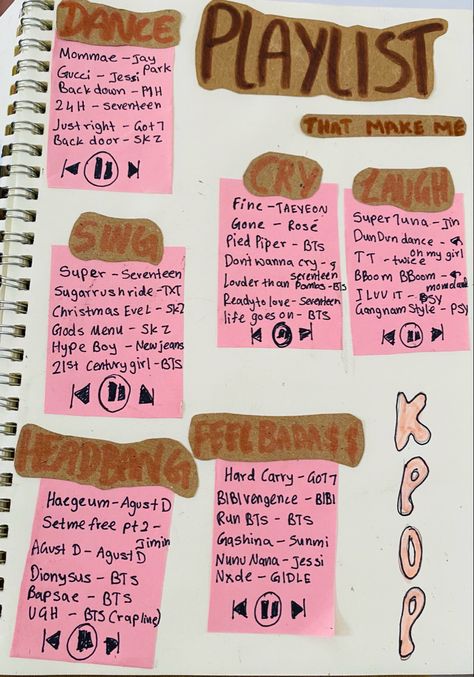 DANCE
Mommae - Jay Park
Gucci - Jessi
Back down - P1H
24H - seventeen
Just right - Got 7
Back door - SKZ
PLAYLIST
THAT MAKE ME
CRY
Fine - TAEYEON
Gone - Rosé
Pied Piper - BTS
Dont wanna cry - seventeen
Louder than bombs - BTS
Ready to love - Seventeen
life goes on - BTS
LAUGH
Super Tuna - Jin
Dun Dun dance - oh my girl
TT - twice
BBoom BBoom - momoland
I LUV IT - PSY
Gangnam Style - PSY
SING
Super - Seventeen
Sugar rush ride - TXT
Christmas EveL - SKZ
Gods Menu - SKZ
Hype Boy - New jeans
21st Century girl - BTS
HEADBANG
Haegeum - Agust D
Set me free pt 2 - Jimin
Agust D - Agust D
Dionysus - BTS
Bapsae - BTS
UGH - BTS (rap line)
FEEL BADA$$
Hard Carry - GOT7
BIBI vengence - BIBI
Run BTS - BTS
Gashina - Sunmi
Nunu Nana - Jessi
Nxde - GIDLE
KPOP